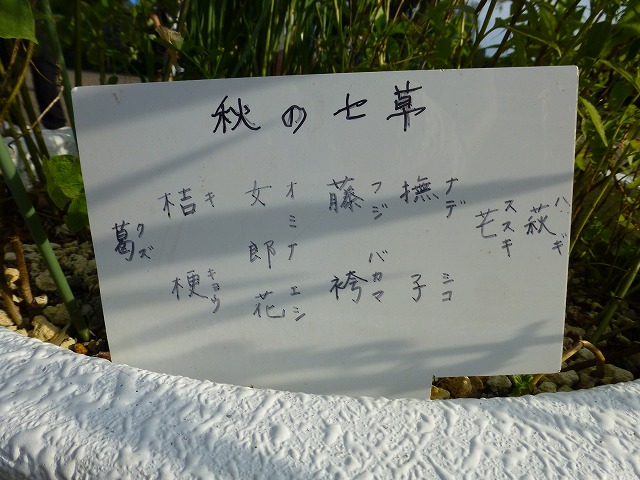 秋の七草
萩 ハギ
芒 ススキ
撫子 ナデシコ
藤袴 フジバカマ
女郎花 オミナエシ
桔梗 キキョウ
葛 クズ